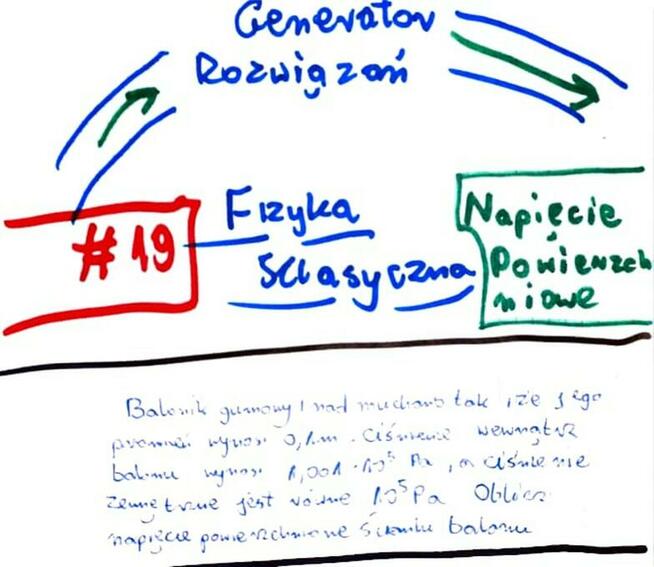 Generator
Rozwiązań
#19
Fizyka
Sclasyczna
Napięcie
Powierzch
niowe
Balonik gumowy nad muchano tak że jego
promień wynosi 0,1m. Ciśnienie wewnątrz
balonu wynosi 1,001·10⁵ Pa, a ciśnienie
zewnętrzne jest równe 10⁵Pa Oblicz
napięcie powierzchniowe ścianki balonu